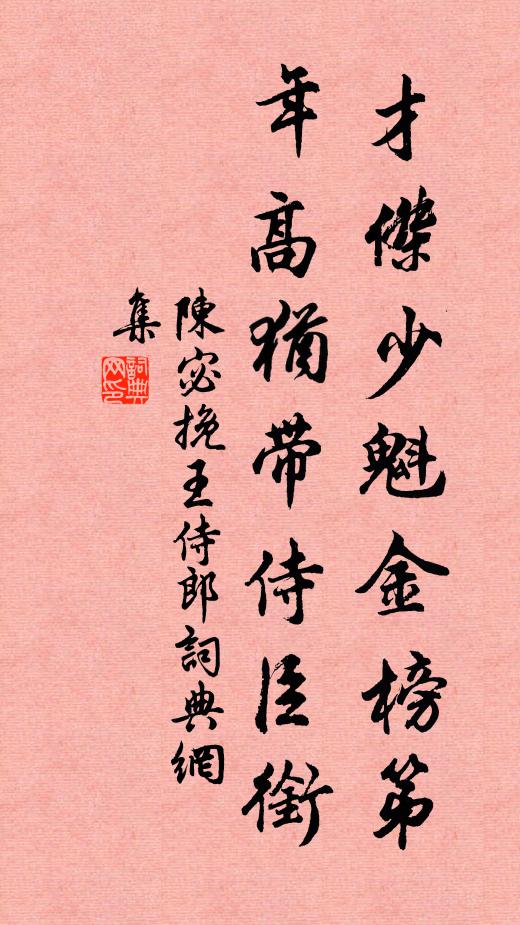 才傑少魁金榜第
年高猶帶侍臣銜
陳宓挽王侍郎詞典網
集
詞典网印